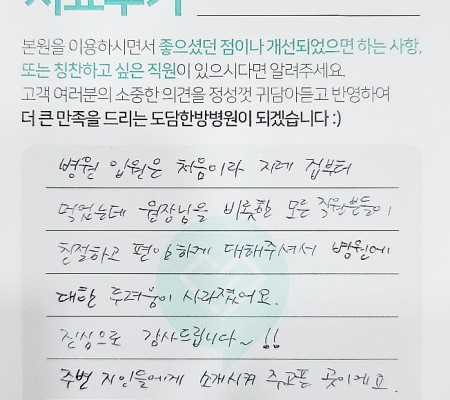 치료후기
본원을 이용하시면서 좋으셨던 점이나 개선되었으면 하는 사항,
또는 칭찬하고 싶은 직원이 있으시다면 알려주세요.
고객 여러분의 소중한 의견을 정성껏 귀담아듣고 반영하여
더 큰 만족을 드리는 도담한방병원이 되겠습니다 :)
병원 입원은 처음이라 지레 겁부터
먹었는데 원장님을 비롯한 모든 직원분들이
친절하고 편안하게 대해주셔서 병원에
대한 두려움이 사라졌어요.
진심으로 감사드립니다~ !!
주변 지인들에게 소개시켜 주고픈 곳이에요.